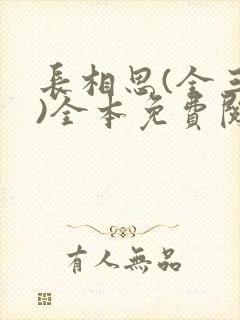 長相思(全三
)全本免費閱
有人無品